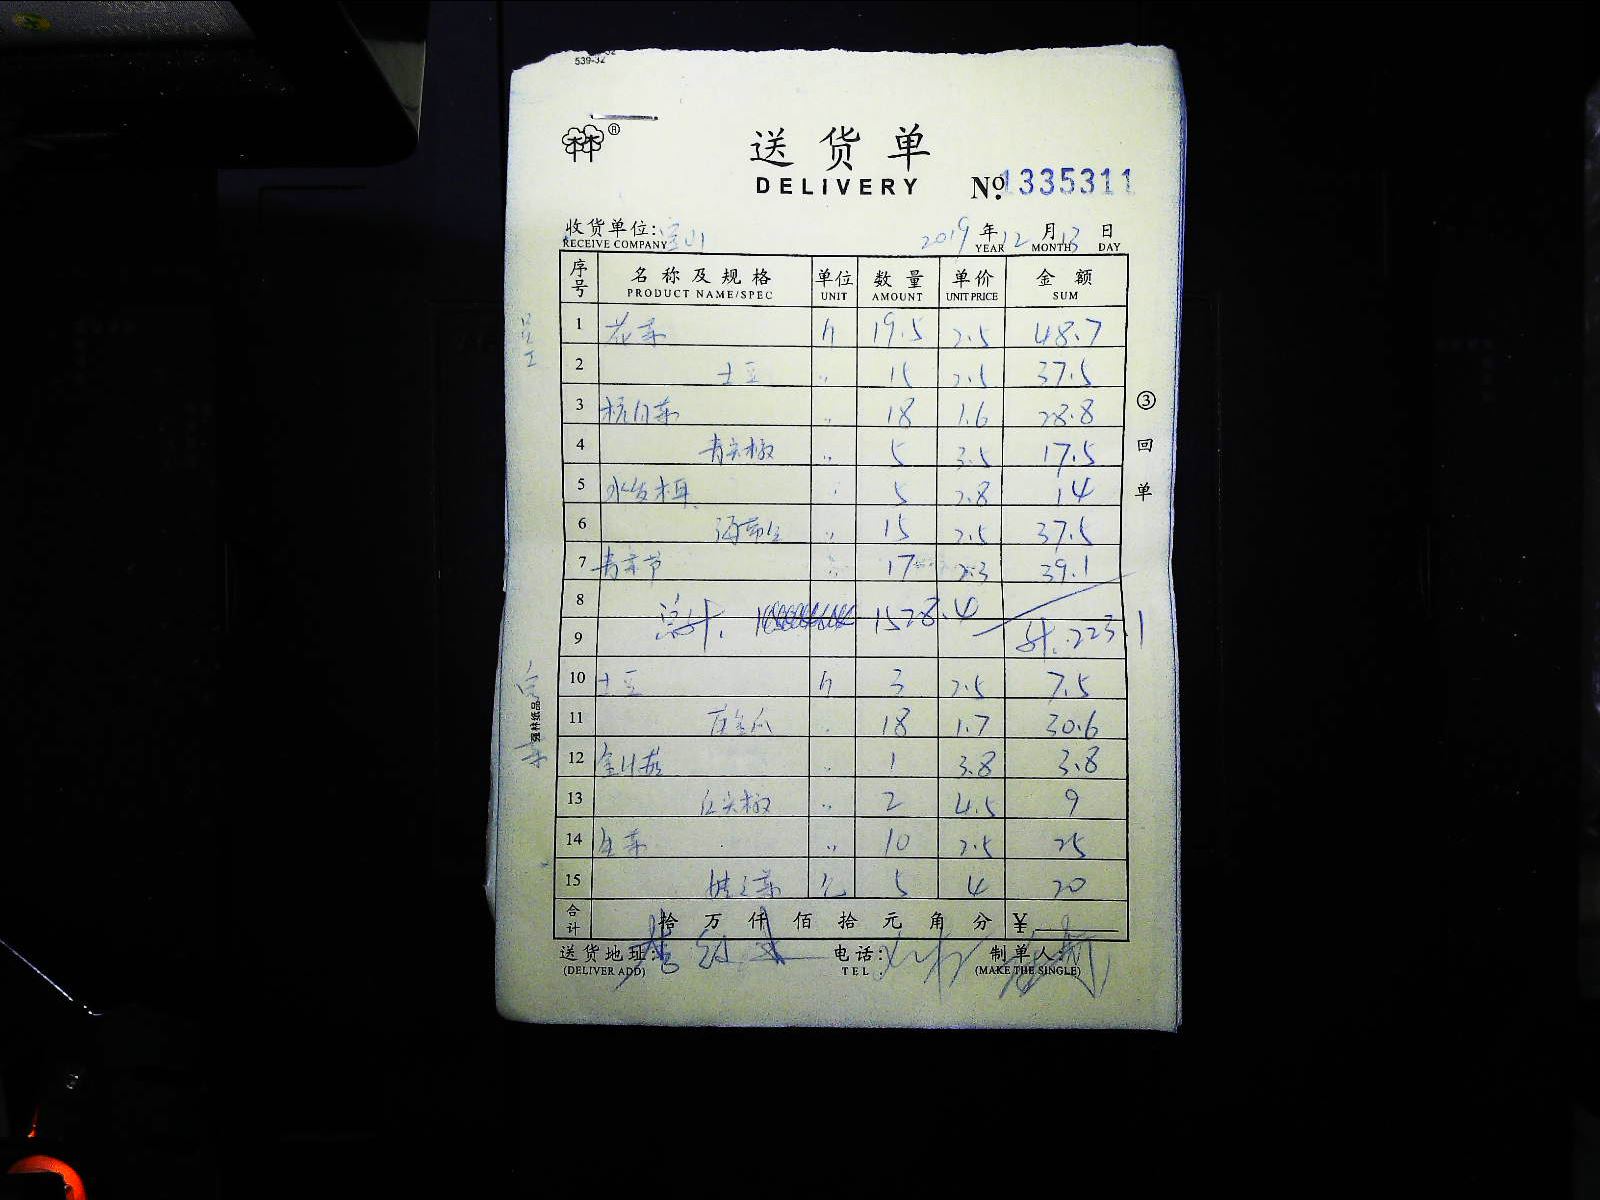 539-32
送货单
DELIVERY
№ 1335311
收货单位: 宝山 2019年12月13日
RECEIVE COMPANY YEAR MONTH DAY
序号 名称及规格 单位 数量 单价 金额
PRODUCT NAME/SPEC UNIT AMOUNT UNIT PRICE SUM
1 花菜 斤 19.5 2.5 48.7
2 土豆 〃 15 2.5 37.5
3 杭白菜 〃 18 1.6 28.8
4 青尖椒 〃 5 3.5 17.5
5 水发木耳 〃 5 2.8 14
6 海带丝 〃 15 2.5 37.5
7 青菜 〃 17 2.3 39.1
8 总计. 1528.4
9 计.223.1
10 土豆 斤 3 2.5 7.5
11 瓜 〃 18 1.7 30.6
12 金针菇 〃 1 3.8 3.8
13 红尖椒 〃 2 4.5 9
14 生菜 〃 10 2.5 25
15 菜 5 4 20
合计 拾万仟佰拾元角分 ¥
送货地址: 电话: 制单人:
(DELIVER ADD) TEL: (MAKE THE SINGLE)
③回单
强林纸品